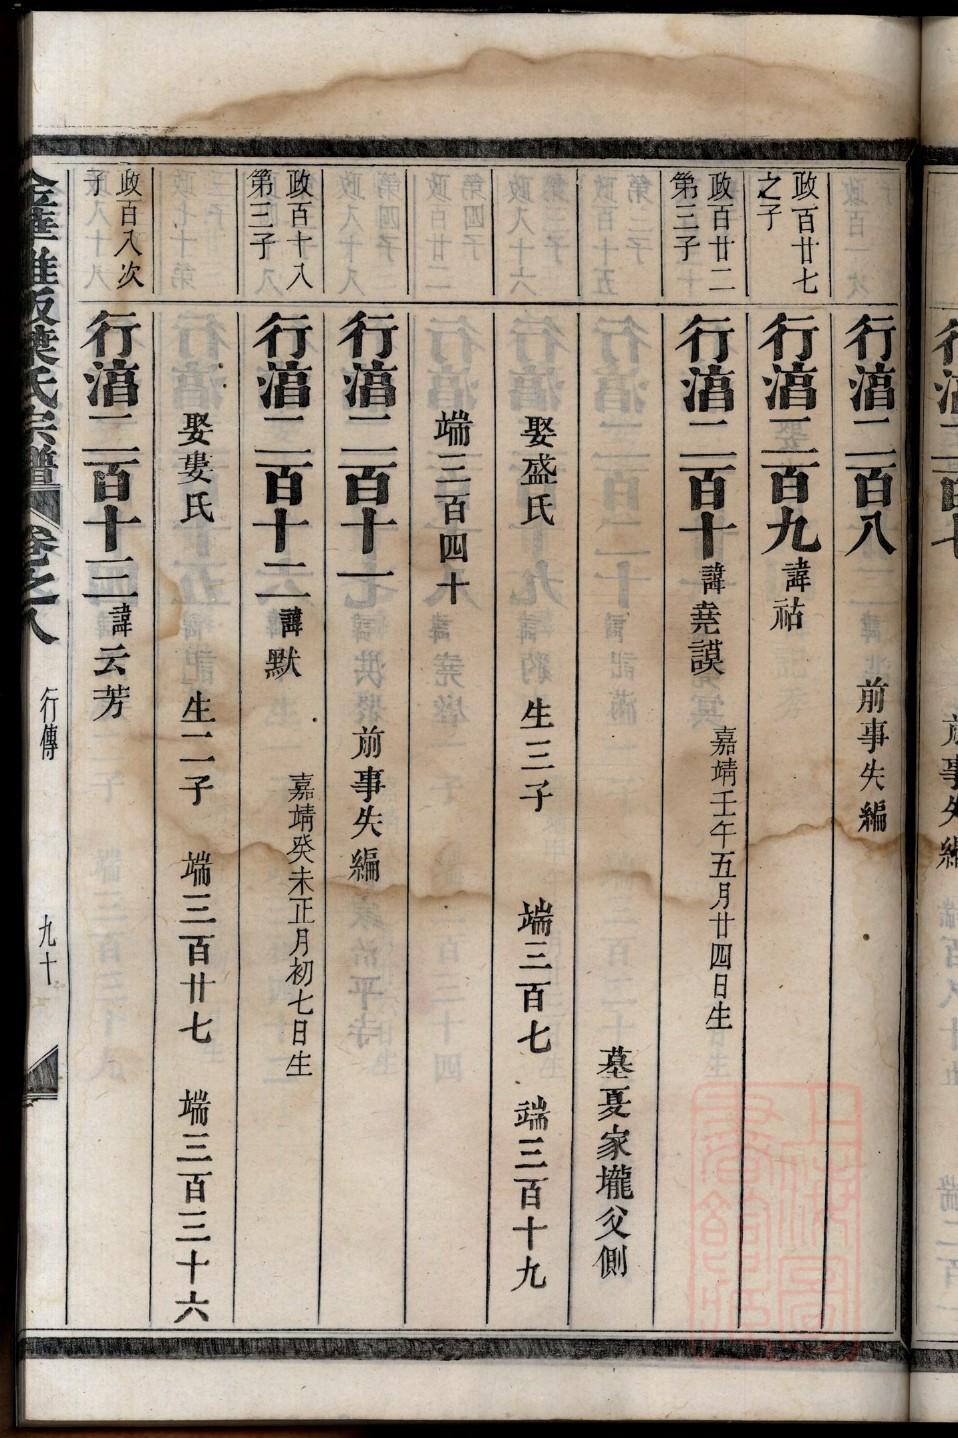 行湻二百八　前事失編
政百廿七
之子
行湻二百九諱祜
政百廿二
第三子
行湻二百十諱堯謨　嘉靖壬午五月廿四日生
墓夏家壠父側
娶盛氏　生三子　端三百七　端三百十九
端三百四十
行湻二百十一　前事失編
政百十八
第三子
行湻二百十二諱默　嘉靖癸未正月初七日生
娶婁氏　生二子　端三百廿七　端三百三十六
政百八次
子
行湻二百十三諱云芳
葉氏宗譜　卷之八　行傳　九十